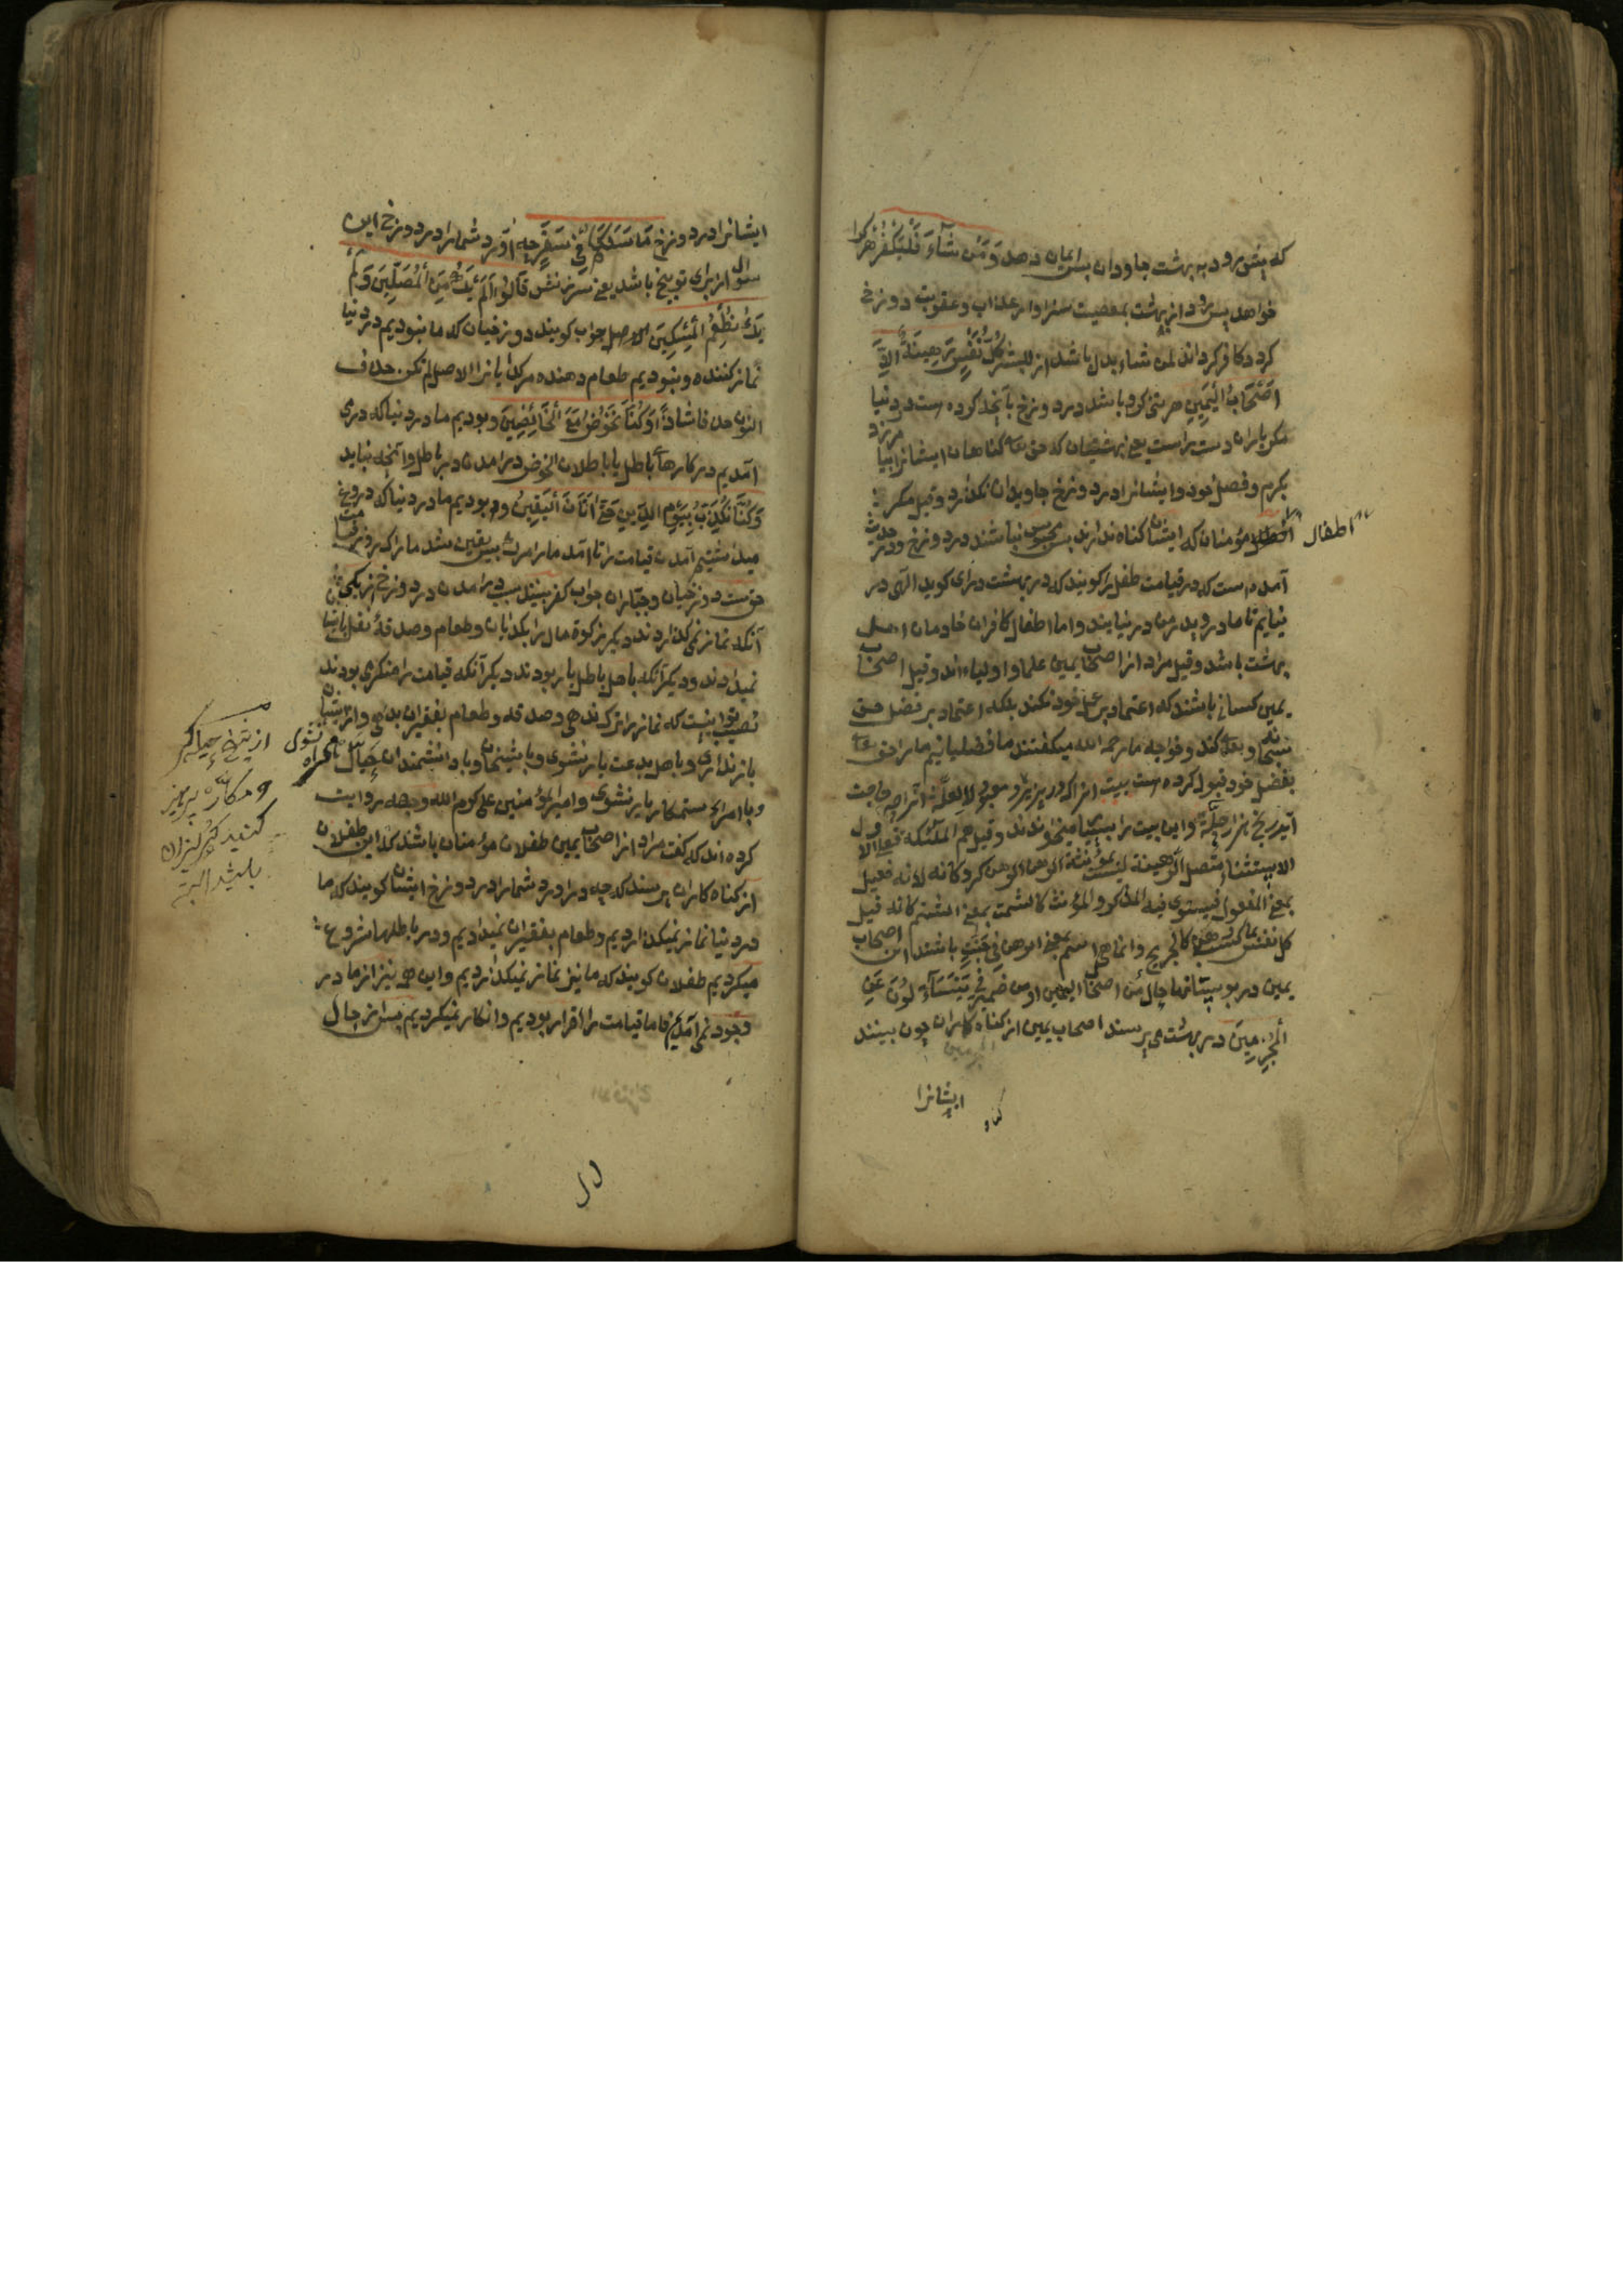 که پیش رود به بهشت جاودان پس ایمان دهد وَمَن شَآءَ فَلْیَکْفُرْ هرکرا
خواهد پس رود از بهشت بمعصیت سزاوار عذاب و عقوبت دوزخ
کردد کافر کرداند لمن شاء بدل باشد از للبشر کُلُّ نَفْسٍ رَهِینَةٌ اِلَّا
اَصْحَابَ الْیَمِینِ هر تنی کرو باشد در دوزخ بآنچه کرده ست در دنیا
مکر یاران دست راست یعنی بهشتیان که حق تعه کناهان ایشانرا بیامرزد
بکرم و فضل خود و ایشانرا در دوزخ جاویدان نکذارد وقیل مکر
اطفال
مؤمنان که ایشان کناه ندارند پس محبوس نباشند در دوزخ و در حدیث
آمده است که در قیامت طفل را کویند که در بهشت درای کوید الهی در
نیایم تا مادر و پدر من در نیایند و اما اطفال کافران خادمان اهل
بهشت باشد وقیل مراد از اصحاب یمین علما و اولیاء اند وقیل اصحاب
یمین کسانی باشند که اعتماد بر عمل خود نکنند بلکه اعتماد بر فضل حق
سبحانه و تعه کند و خواجه ما رحمه الله میکفتند ما فضلیانیم ما را حق تعه
بفضل خود قبول کرده ست بیت آنرا که در پذیرد
و این بیت را بسیار میخوندند وقیل هم الملئکه
الاستثناء متصل الرهینة لیست بمؤنثة الرهن
بمعنی المفعول فیستوی فیه المذکر و المؤنث کالشمت بمعنی الشتم کانه قیل
کل نفس بما کسبت رهین کالجریح و انما هی اسم بمعنی الرهن فِی جَنّٰتٍ باشند این اصحاب
یمین در بوستانها حال من اصحاب الیمین او من ضمیر فی یَتَسَآءَلُونَ عَنِ
الْمُجْرِمِینَ در بهشت می پرسند اصحاب یمین از کناه کاران چون بینند
ایشانرا
ایشانرا در دوزخ مَا سَلَکَکُمْ فِی سَقَرَ چه اورد شما را در دوزخ این
سوال از برای توبیخ باشد یعنی سرزنش قَالُوا لَمْ نَکُ مِنَ الْمُصَلِّینَ وَلَمْ
نَکُ نُطْعِمُ الْمِسْکِینَ الاصل جواب کویند دوزخیان که ما نبودیم در دنیا
نماز کننده و نبودیم طعام دهنده مر کدایانرا الاصل لم نکن حذف
النون حذفا شاذا وَکُنَّا نَخُوضُ مَعَ الْخَآئِضِینَ و بودیم ما در دنیا که دری
آمدیم در کارهآ باطل یا باطلان الخوض درامدن در باطل و آنچه نباید
وَکُنَّا نُکَذِّبُ بِیَوْمِ الدِّینِ حَتّٰی اَتَانَا الْیَقِینُ و بودیم ما در دنیا که دروغ
میداشتیم آمدن قیامت را تا آمد ما را مرک پس یقین شد ما را که روز قیامت
حق ست دوزخیان و جباران جواب کفر بینند سبب درامدن در دوزخ
آنکه نماز نمی کذاردند دیکر زکوة مال را بکدایان و طعام و صدقهٔ نفل بایشان
نمیدادند و دیکر آنکه باهل باطل یار بودند دیکر آنکه قیامت را منکر می بودند
نصیب تو اینست که نماز را ترک ندهی و صدقه و طعام بفقیران بدهی و از ایشان
باز نداری و با اهل بدعت یار نشوی و با شیخان و با دانشمندان حیال همراه نشوی
و با امراء ستمکار یار نشوی و امیر المؤمنین علی کرم الله وجهه روایت
کرده اند که کفت مراد از اصحاب یمین طفلان مؤمنان باشد که این طفلان
از کناه کاران پرسند که چه درآورد شما را در دوزخ ایشان کویند که ما
در دنیا نماز نمیکذاردیم و طعام بفقیران نمیدادیم و در باطلها شروع
میکردیم طفلان کویند که ما نیز نماز نمیکذاردیم و این هر نیز از ما در
وجود نمی آمد فاما قیامت را اقرار بودیم و انکار نمیکردیم پس از حال
از شیخ
و مکار پرهیز
کنید
باشید البته